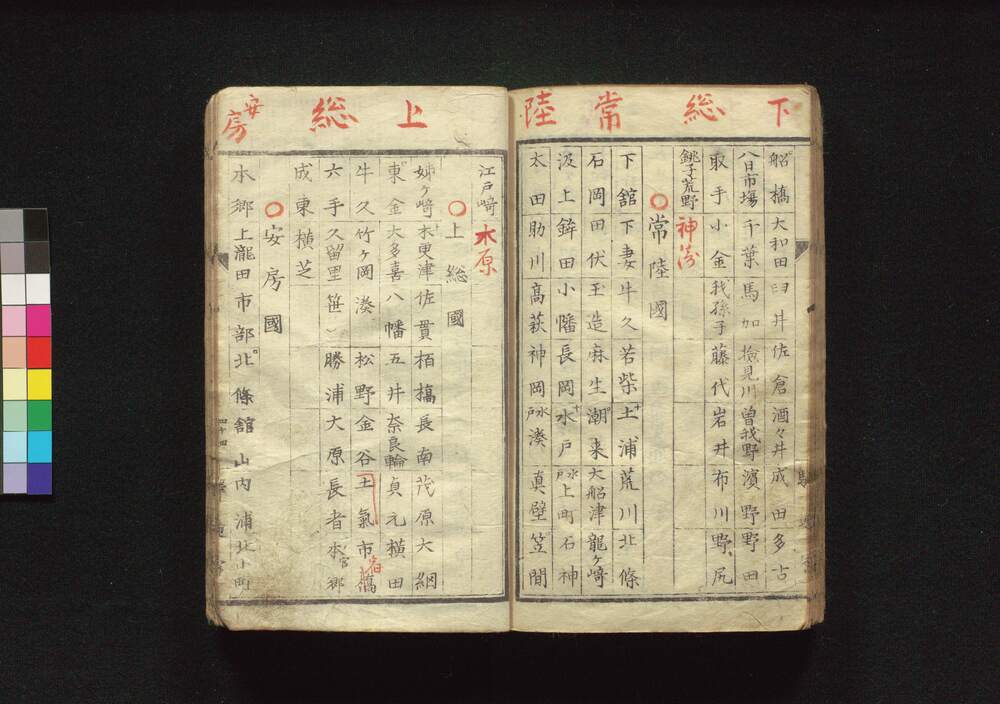 下総常陸
船橋 大和田 臼井 佐倉 酒々井 成田 多古
八日市塲 千葉 馬加 撿見川 曽我野 濱野 野田
取手 小金 我孫子 藤代 岩井 布川 野尻
銚子荒野 神
〇常陸國
下舘 下妻 牛久 若柴 土浦 荒川 北條
石岡 田伏 玉造 麻生 潮来 大船津 龍ヶ﨑
汲上 鉾田 小幡 長岡 水戸 水戸上町 石神
太田 助川 髙萩 神岡 水戸湊 真壁 笠間
上総 安房
江戸﨑 木原
〇上総國
姊ヶ﨑 木更津 佐貫 栢槗 長南 茂原 大網
東金 大多喜 八幡 五井 奈良輪 貞元 横田
牛久 竹ヶ岡 湊 松野 金谷 土氣 市
六手 久留里 笹 勝浦 大原 長者 本 宮 郷
成東 横芝
〇安房國
本郷 上瀧田 市部 北條 舘山 内浦 北小町